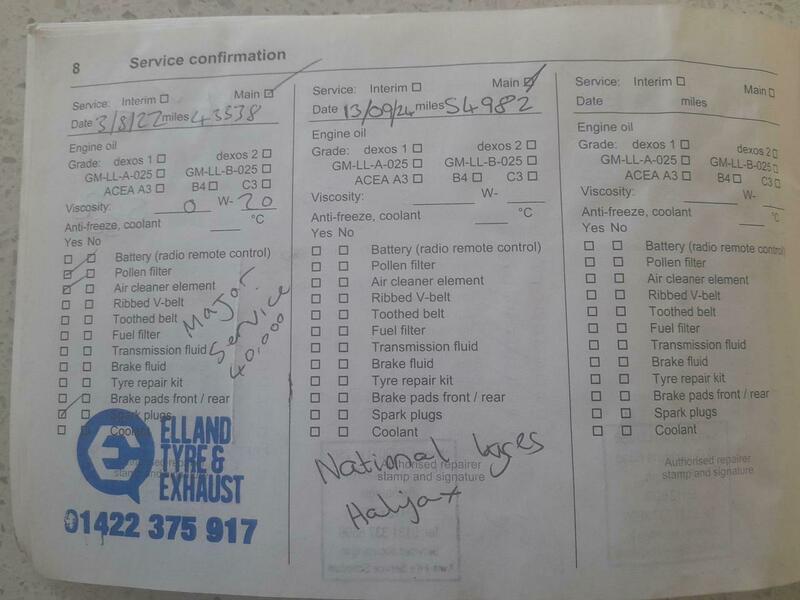 8 Service confirmation
Service: Interim ☐ Main ☑
Date 3/8/22 miles 43338
Engine oil
Grade: dexos 1 ☐ dexos 2 ☐
GM-LL-A-025 ☐ GM-LL-B-025 ☐
ACEA A3 ☐ B4 ☐ C3 ☐
Viscosity: 0 W- 20
Anti-freeze, coolant ___ °C
Yes No
Battery (radio remote control)
Pollen filter
Air cleaner element
Ribbed V-belt
Toothed belt
Fuel filter
Transmission fluid
Brake fluid
Tyre repair kit
Brake pads front / rear
Spark plugs
Coolant
Major
Service
40,000
ELLAND
TYRE &
EXHAUST
01422 375 917
Service: Interim ☐ Main ☑
Date 13/09/24 miles 54982
Engine oil
Grade: dexos 1 ☐ dexos 2 ☐
GM-LL-A-025 ☐ GM-LL-B-025 ☐
ACEA A3 ☐ B4 ☐ C3 ☐
Viscosity: ___ W- ___
Anti-freeze, coolant ___ °C
Yes No
☐ ☐ Battery (radio remote control)
☐ ☐ Pollen filter
☐ ☐ Air cleaner element
☐ ☐ Ribbed V-belt
☐ ☐ Toothed belt
☐ ☐ Fuel filter
☐ ☐ Transmission fluid
☐ ☐ Brake fluid
☐ ☐ Tyre repair kit
☐ ☐ Brake pads front / rear
☐ ☐ Spark plugs
☐ ☐ Coolant
National tyres
Authorised repairer
stamp and signature
Halifax
Service: Interim ☐ Main ☐
Date miles
Engine oil
Grade: dexos 1 ☐ dexos 2 ☐
GM-LL-A-025 ☐ GM-LL-B-025 ☐
ACEA A3 ☐ B4 ☐ C3 ☐
Viscosity: ___ W- ___
Anti-freeze, coolant ___ °C
Yes No
☐ ☐ Battery (radio remote control)
☐ ☐ Pollen filter
☐ ☐ Air cleaner element
☐ ☐ Ribbed V-belt
☐ ☐ Toothed belt
☐ ☐ Fuel filter
☐ ☐ Transmission fluid
☐ ☐ Brake fluid
☐ ☐ Tyre repair kit
☐ ☐ Brake pads front / rear
☐ ☐ Spark plugs
☐ ☐ Coolant
Authorised repairer
stamp and signature